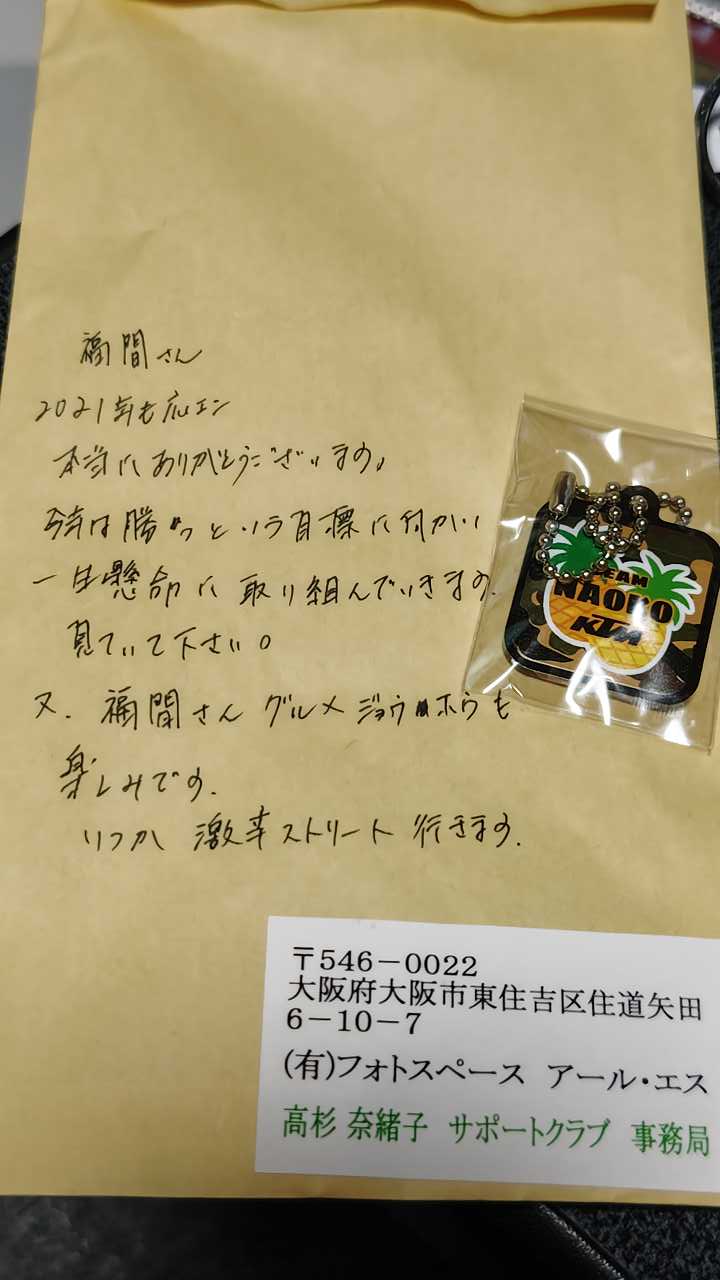 福間さん
2021年も応エン
本当にありがとうございます。
今年は勝つという目標に向かい
一生懸命に取り組んでいきます.
見ていて下さい。
又. 福間さん グルメ ジョウホウも
楽しみです.
いつか 激辛ストリート 行きます.
TEAM
NAOKO
KTM
〒546-0022
大阪府大阪市東住吉区住道矢田
6-10-7
(有)フォトスペース アール・エス
高杉 奈緒子 サポートクラブ 事務局